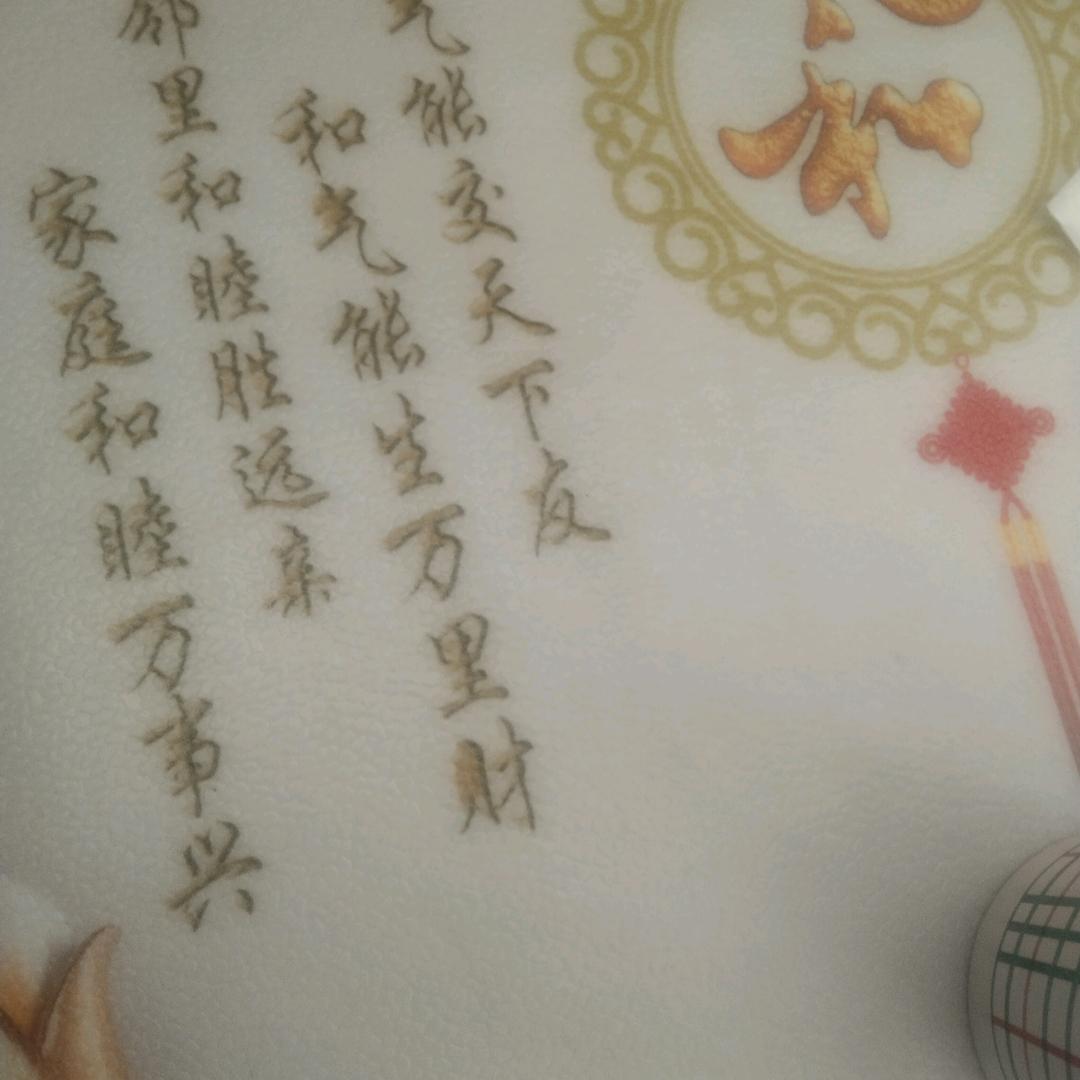 气能交天下友
和气能生万里财
邻里和睦胜远亲
家庭和睦万事兴